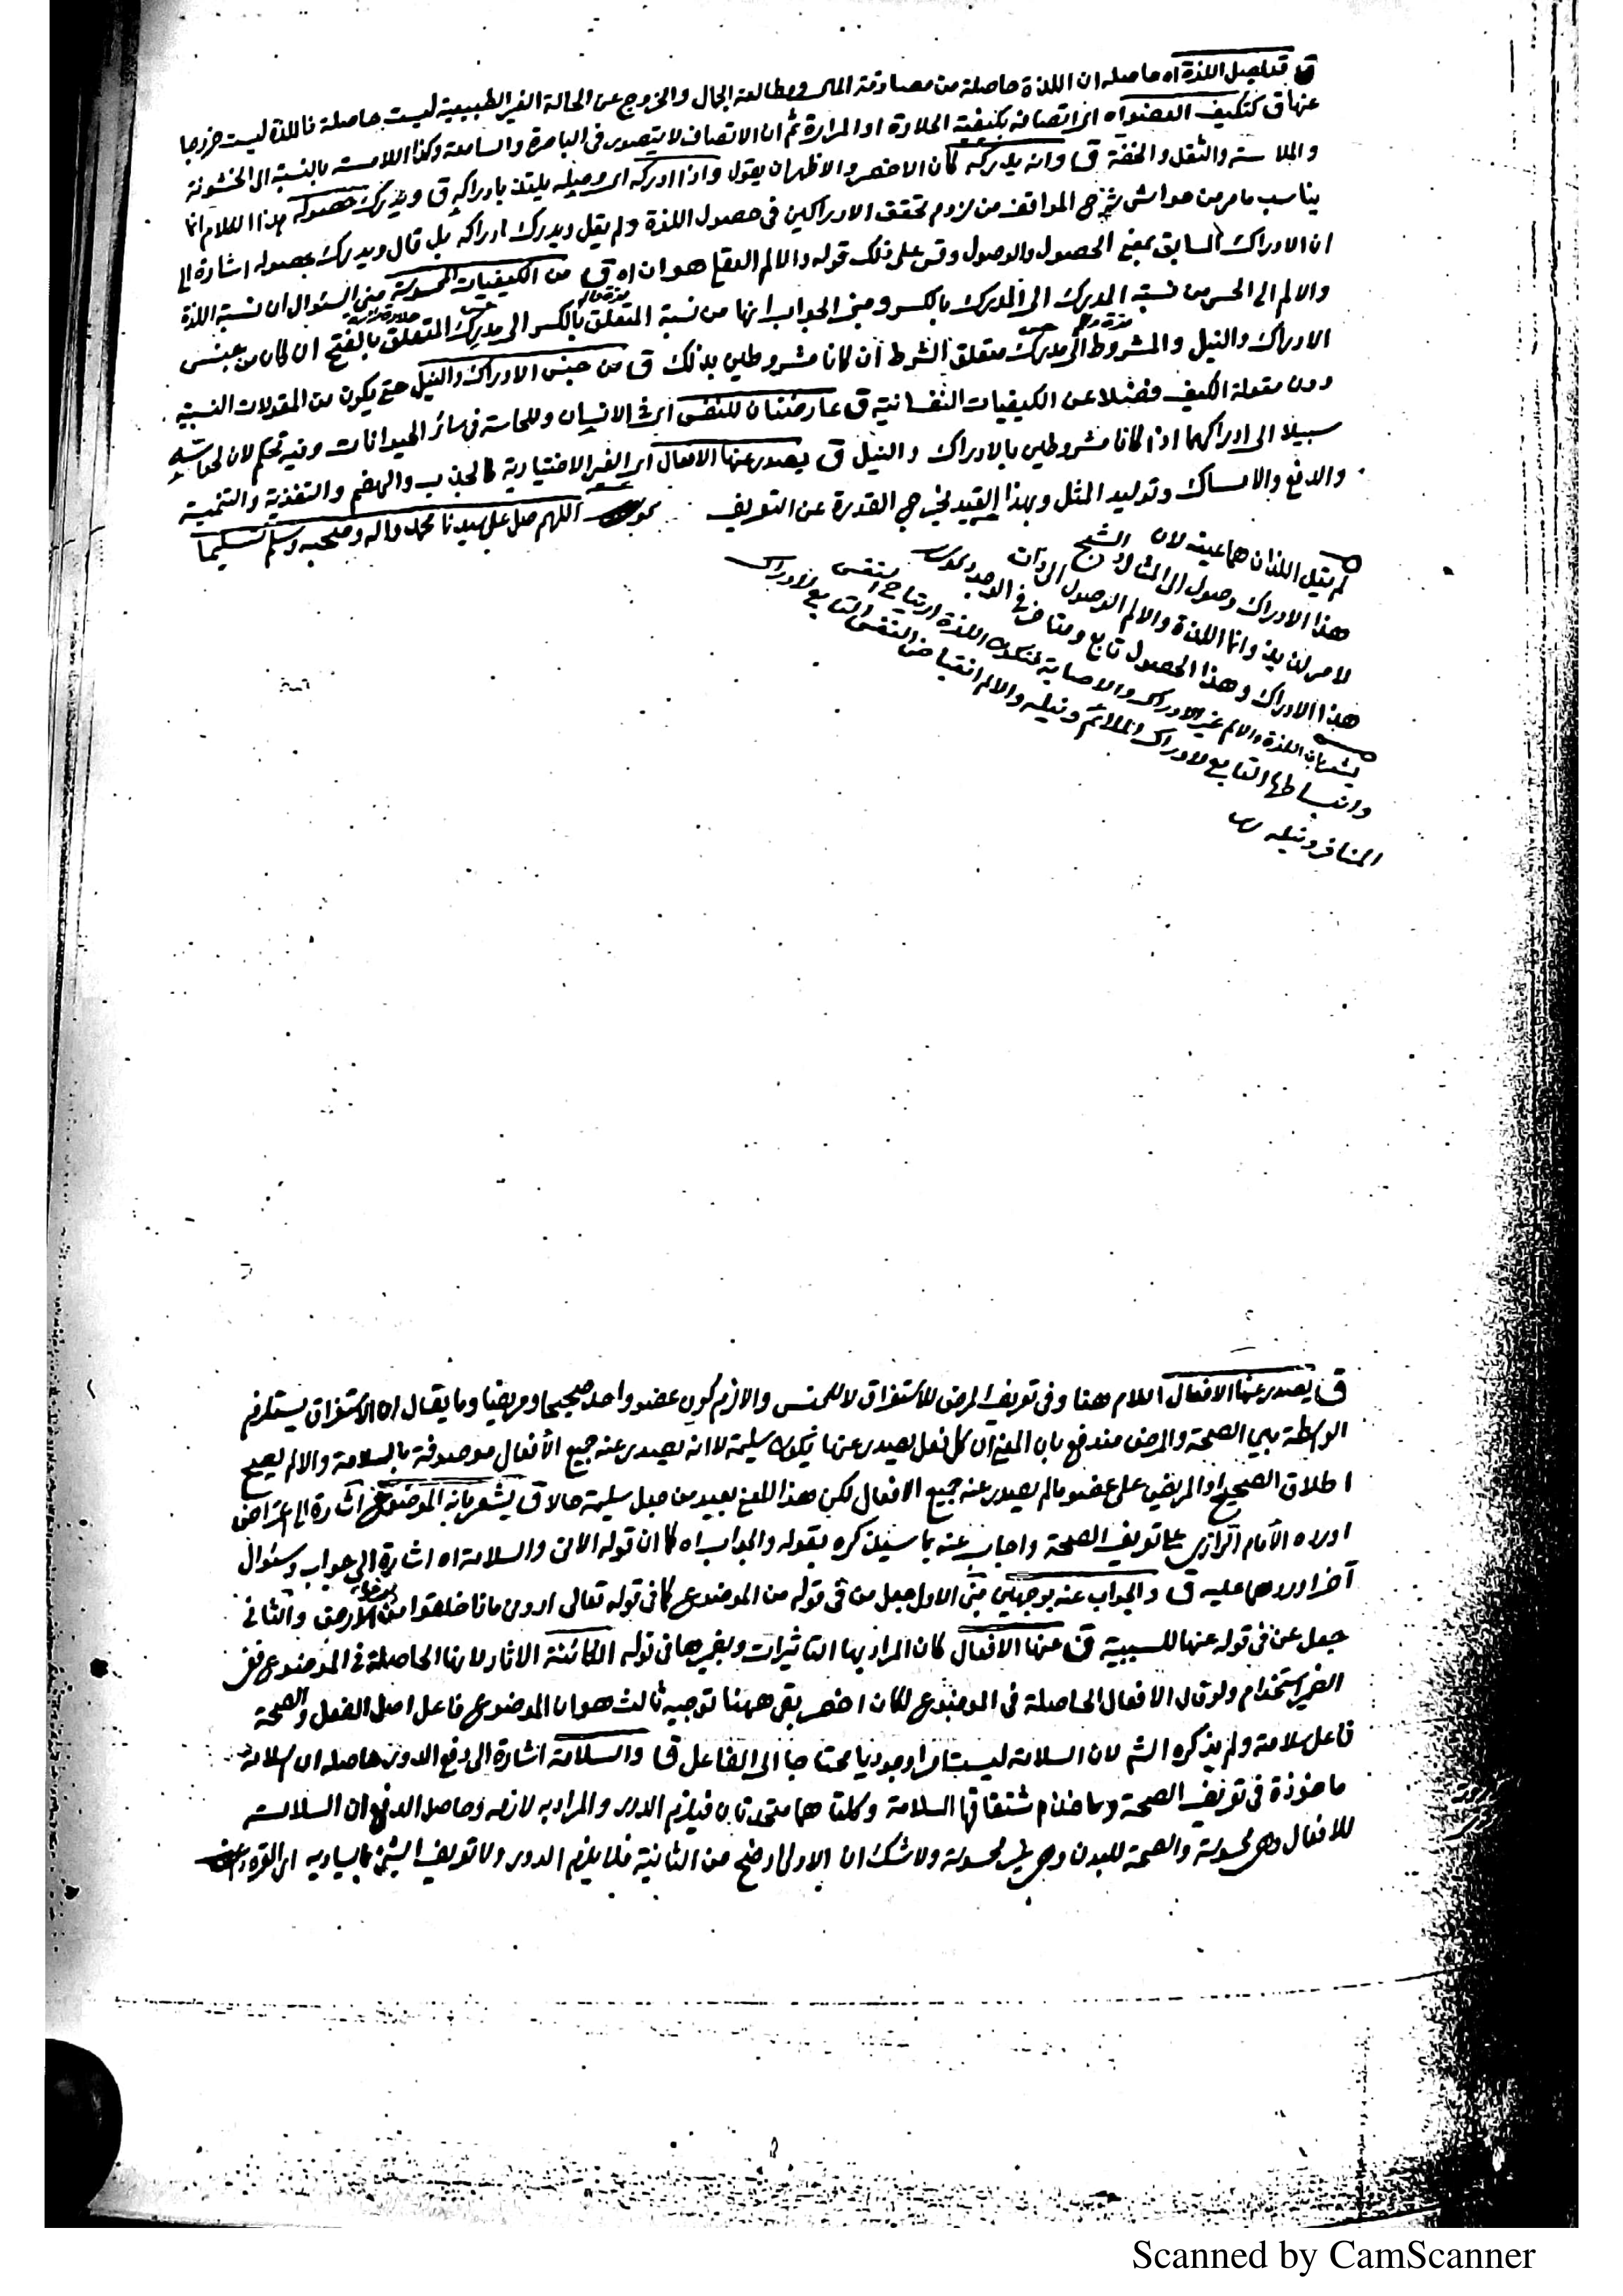 ق قد تحصل اللذة اه حاصله ان اللذة حاصلة من مصادفة المال ومطالعة الجمال والخروج عن الحالة الغير الطبيعية ليست حاصلة فاللذة ليست خروجا
عنها ق كتكيف العضو اه اى اتصافه بكيفية الحلاوة او المرارة ثم ان الاتصاف لا يتصور فى الباصرة والسامعة وكذا اللامسة بالنسبة الى الخشونة
والملاسة والثقل والخفة ق وانه يدركه كان الاخصر والاظهر ان يقول واذا ادركه اى وصله يلتذ بادراكه ق ويدرك حصوله هذا الكلام انما
يناسب ما مر من حواشى شرح المواقف من لزوم تحقق الادراكين فى حصول اللذة ولم يقل ويدرك ادراكه بل قال ويدرك حصوله اشارة الى
ان الادراك السابق بمعنى الحصول والوصول وقس على ذلك قوله والالم العقلى هو ان اه ق من الكيفيات المحسوسة مبنى السئوال ان نسبة اللذة
والالم الى الحس من نسبة المدرك الى المدرك بالكسر ومبنى الجواب انها من نسبة المتعلق بالكسر الى مدرك المتعلق بالفتح ان كان من جنس
الادراك والنيل والمشروط الى مدرك متعلق الشرط ان كانا مشروطين بذلك ق من جنس الادراك والنيل حتى يكون من المقولات النسبية
دون مقولة الكيف فضلا عن الكيفيات النفسانية ق عارضتان للنفس اى فى الانسان وللحاسة فى سائر الحيوانات وفيه تحكم لان لحاسته
سبيلا الى ادراكهما اذا كانا مشروطين بالادراك والنيل ق يصدر عنها الافعال اى الغير الاختيارية كالجذب والهضم والتغذية والتنمية
والدفع والامساك وتوليد المثل وبهذا القيد يخرج القدرة عن التعريف اللهم صل على سيدنا محمد واله وصحبه وسلم تسليما
لم يقل اللذان هما عينه لان
هذا الادراك وصول الى المثال والشبح
لامر لذيذ وانما اللذة والالم الوصول الى ذات
هذا الادراك وهذا الحصول تابع ومتأخر فى الوجود
يشعر بان اللذة والالم غير الادراك والاصابة فتكون اللذة ارتياح النفس
وانبساطها التابع لادراك الملائم ونيله والالم انقباض النفس التابع لادراك
المنافر ونيله
ق يصدر عنها الافعال اللام هنا وفى تعريف المرض للاستغراق لا للجنس والا لزم كون عضو واحد صحيحا ومريضا وما يقال ان الاستغراق يستلزم
الواسطة بين الصحة والمرض مندفع بان المعنى ان كل فعل يصدر عنها يكون سليمة لا انه يصدر عنه جميع الأفعال موصوفة بالسلامة والا لم يصح
اطلاق الصحيح او المريض على عضو ما لم يصدر عنه جميع الافعال لكن هذا المعنى بعيد من جعل سليمة حالا ق يشعر بانه الموضوع اشارة الى اعتراض
اورده الأمام الرازى على تعريف الصحة واجاب عنه بما سيذكره بقوله والجواب اه كما ان قوله الاتى والسلامة اه اشارة الى جواب وسئوال
آخر اوردهما عليه ق والجواب عنه بوجهين مبنى الاول جعل من فى قوله من الموضوع كما فى قوله تعالى ارونى ماذا خلقوا من الأرض والثانى
جعل عن فى قوله عنها للسببية ق عنها الافعال كان المراد بها التاثيرات وبضميرها فى قوله الكائنة الاثار لانها الحاصلة فى الموضوع ففى
الضمير استخدام ولو قال الافعال الحاصلة فى الموضوع لكان اخصر بقى ههنا توجيه ثالث هو ان الموضوع فاعل اصل الفعل والصحة
فاعل سلامة ولم يذكره الش لان السلامة ليست امرا وجوديا محتاجا الى الفاعل ق والسلامة اشارة الى دفع الدور حاصله ان السلامة
ماخوذة فى تعريف الصحة وماخذ اشتقاقها السلامة وكلتاهما متحدتان فيلزم الدور والمراد به لازمه وحاصل الدفع ان السلامة
للافعال وهى محسوسة والصحة للبدن وهى غير محسوسة ولا شك ان الاولى اوضح من الثانية فلا يلزم الدور ولا تعريف الشئ بما يساويه